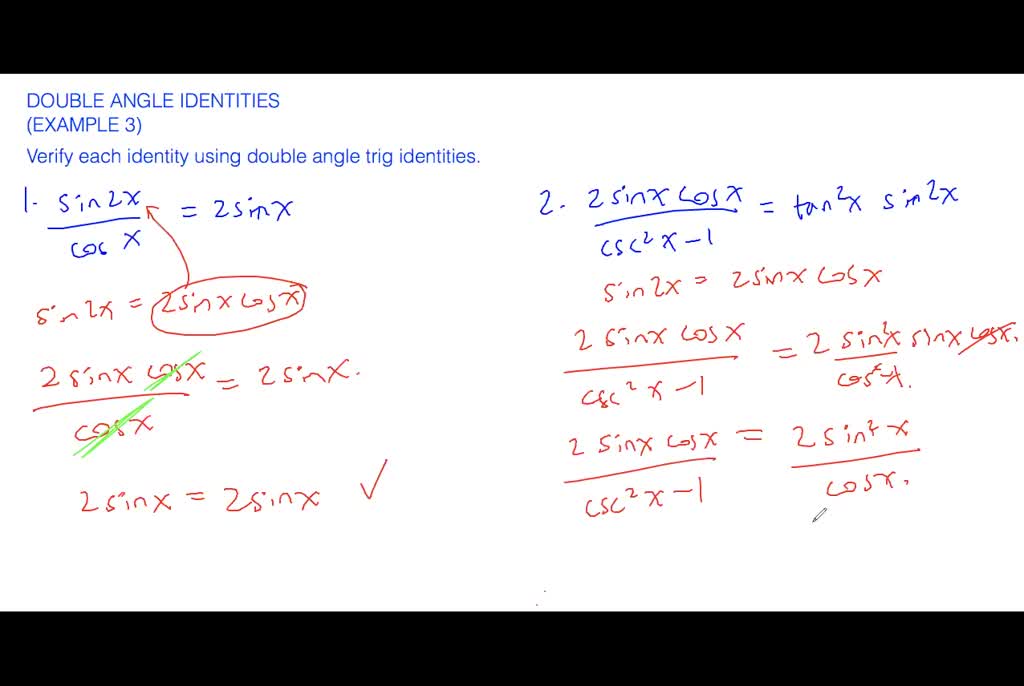 DOUBLE ANGLE IDENTITIES
(EXAMPLE 3)
Verify each identity using double angle trig identities.
1. sin2x / cos x = 2sinx
sin2x = 2sinx cosx
2 sinx cosx / cosx = 2sinx.
2sinx = 2sinx ✓
2. 2sinx cosx / csc²x-1 = tan²x sin2x
sin2x = 2sinx cosx
2 sinx cosx / csc²x-1 = 2 sin²x / cos²x sinx cosx.
2 sinx cosx / csc²x-1 = 2sin²x / cosx.